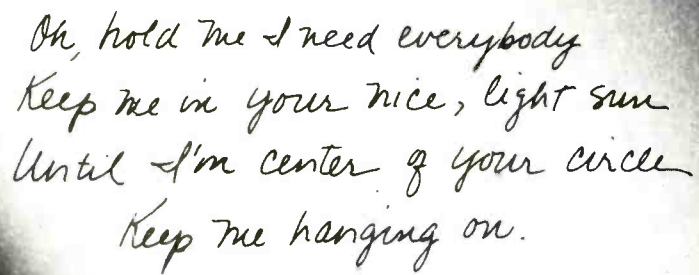 Oh, hold me I need everybody
Keep me in your nice, light sun
Until I'm center of your circle
Keep me hanging on.